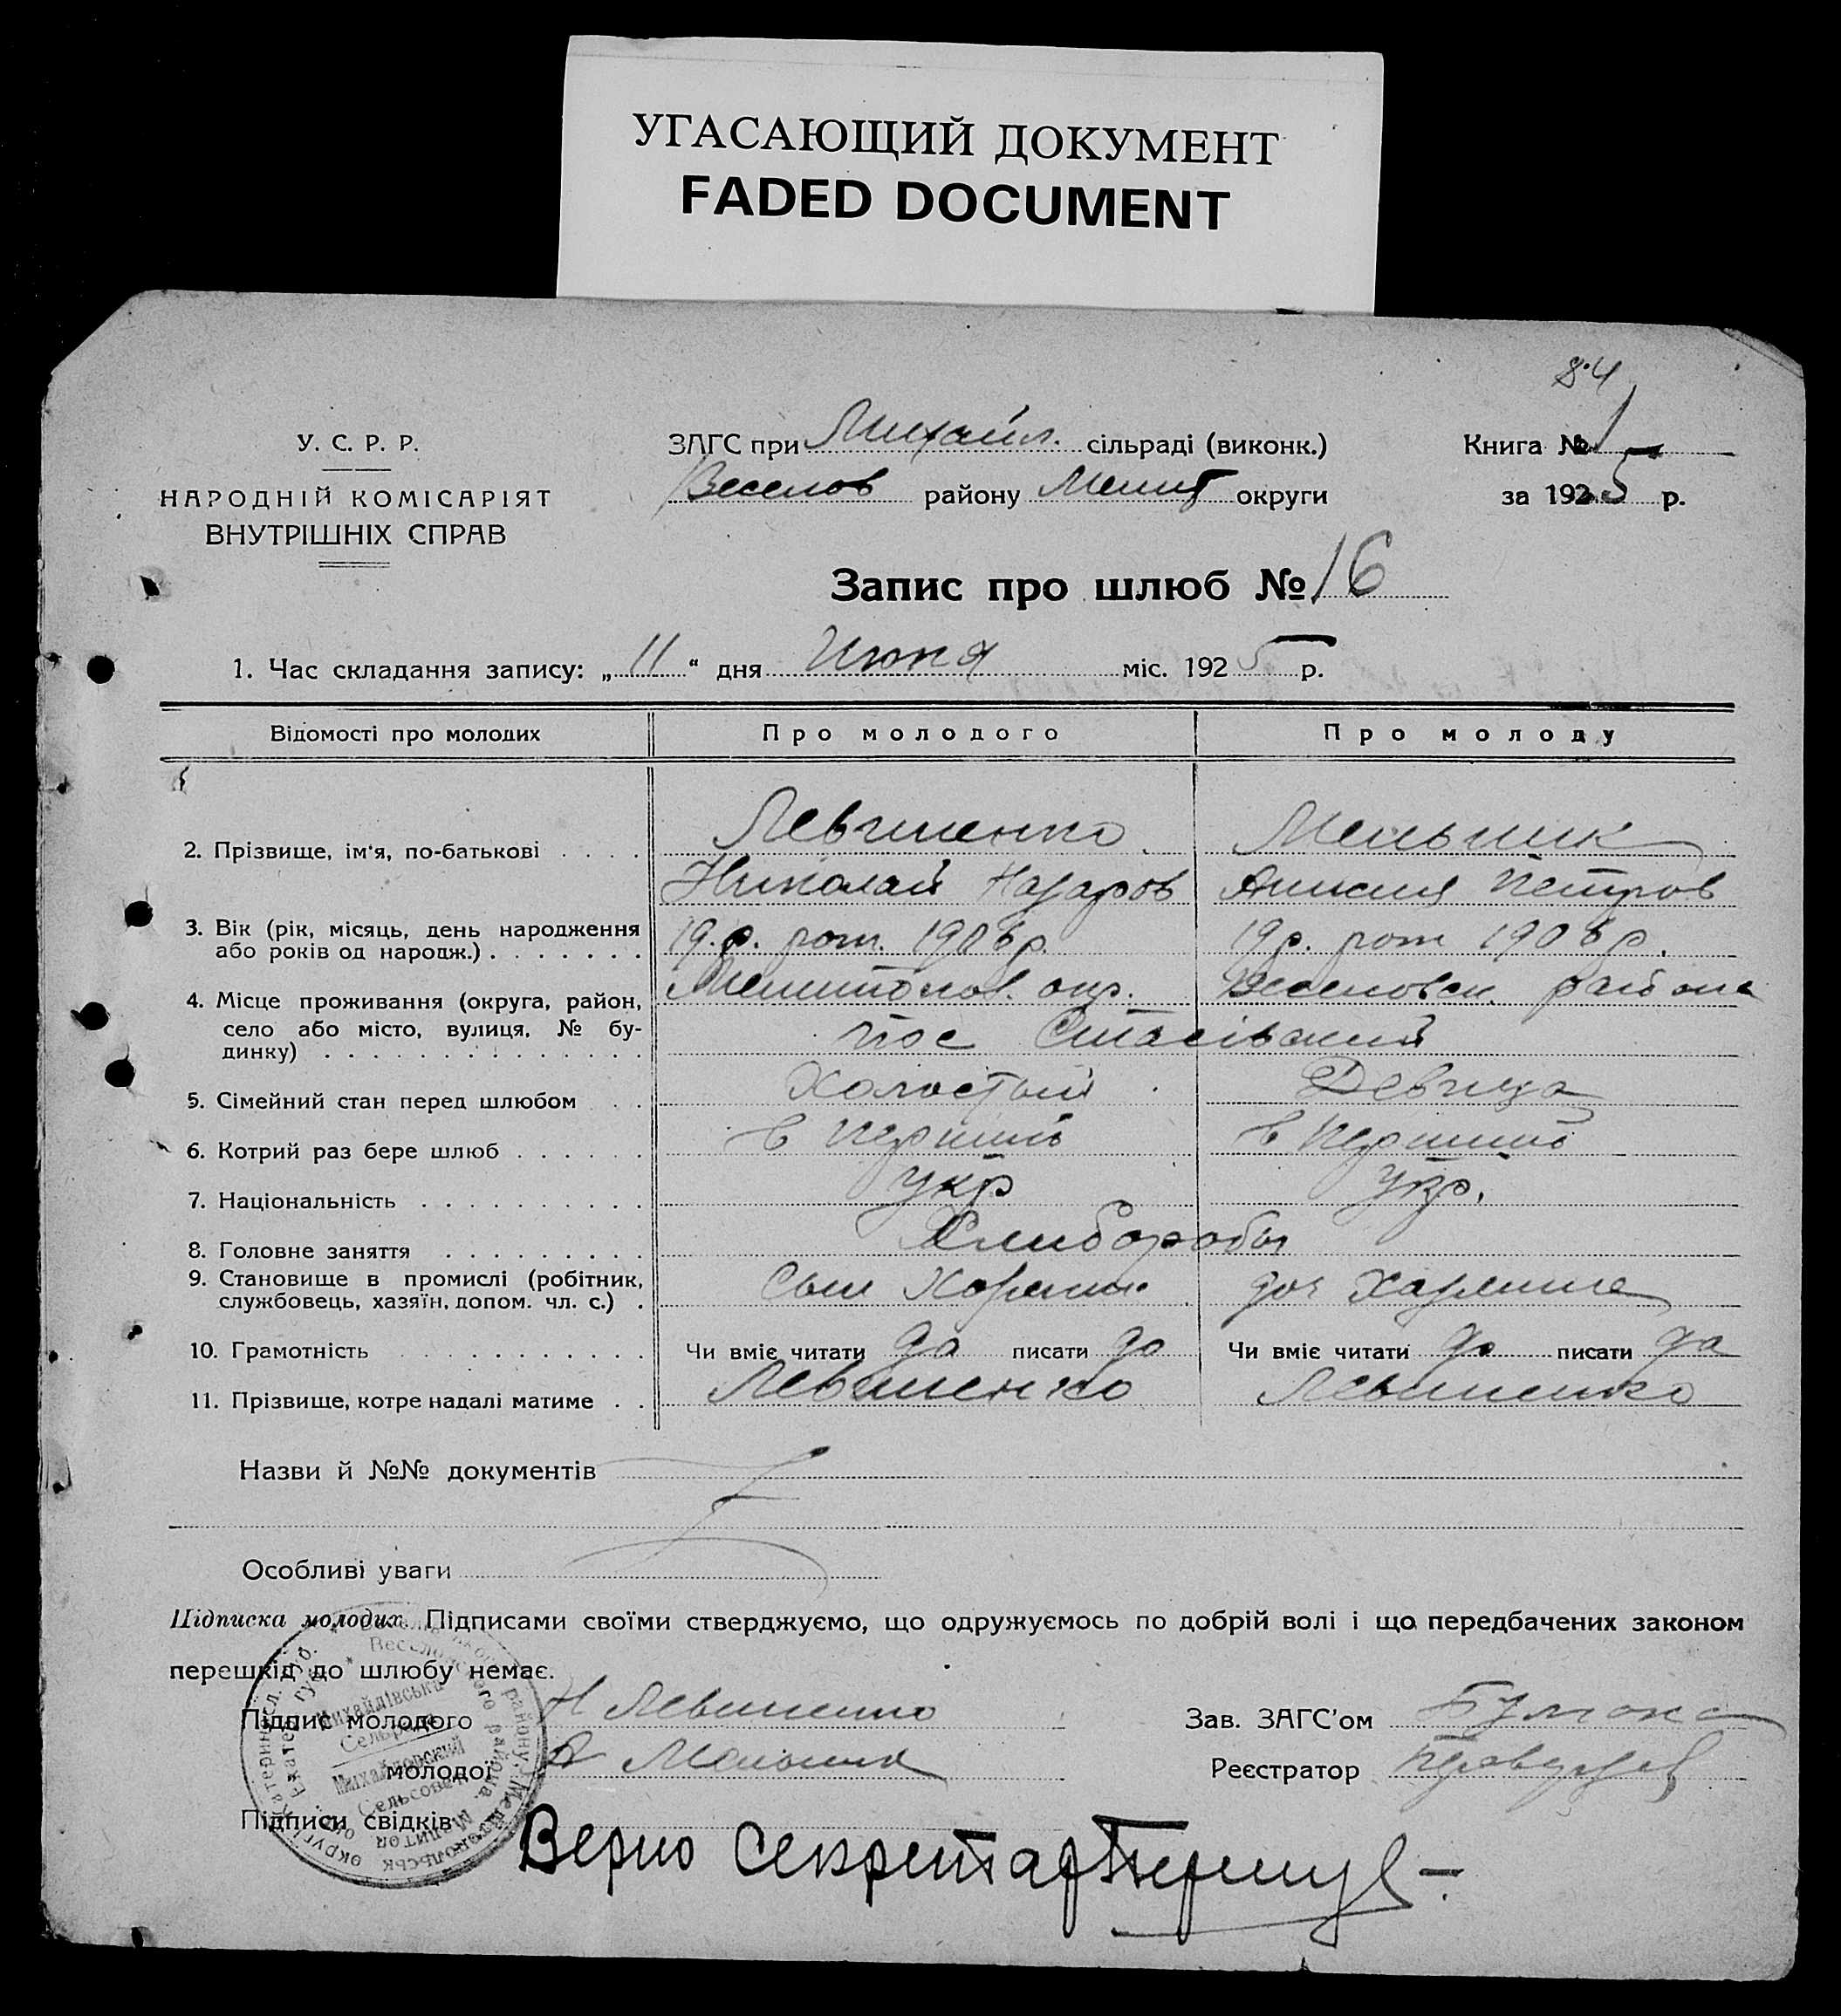 УГАСАЮЩИЙ ДОКУМЕНТ
FADED DOCUMENT
84
У. С. Р. Р.
НАРОДНІЙ КОМІСАРІЯТ
ВНУТРІШНІХ СПРАВ
ЗАГС при Михайл. сільраді (виконк.)
Веселов району Мелит округи
Книга № 1
за 1925 р.
Запис про шлюб № 16
1. Час складання запису: „11“ дня Июня міс. 1925 р.
Відомості про молодих Про молодого Про молоду
2. Прізвище, ім'я, по-батькові Левченко Мельник
Николай Назаров Петров
3. Вік (рік, місяць, день народження
або років од народж.) 19 р. рож. 1906 р. 19 р. рож 1906 р.
4. Місце проживання (округа, район,
село або місто, вулиця, № бу-
динку)
Мелитопол. окр. Веселовск. района
пос
5. Сімейний стан перед шлюбом Холостый Девица
6. Котрий раз бере шлюб в первый в первый
7. Національність Укр Укр.
8. Головне заняття Хлиборобы
9. Становище в промислі (робітник,
службовець, хазяїн, допом. чл. с.) Сын Хозяина доч Хазяина
10. Грамотність Чи вміє читати да писати да Чи вміє читати да писати да
11. Прізвище, котре надалі матиме Левченко Левченко
Назви й №№ документів
Особливі уваги
Підписка молодих. Підписами своїми стверджуємо, що одружуємось по добрій волі і що передбачених законом
перешкід до шлюбу немає.
Підпис молодого Н Левченко
Зав. ЗАГС'ом
молодої А Мельник
Реєстратор
Підписи свідків
Михайлівська
Сельрада
Михайловский
Сельсовет
Верно Секретар